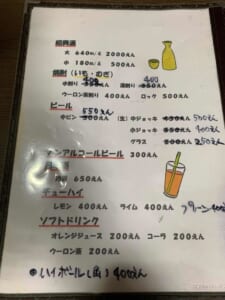 紹興酒
大 640m/ℓ 2000えん
小 180m/ℓ 500えん
焼酎（いも・むぎ）
400 400
水割り 湯割り
ウーロン茶割り 400えん ロック 500えん
ビール
550えん
中ビン （生）中ジョッキ 500えん
大ジョッキ 900えん
グラス 250えん
ノンアルコールビール 300えん
650えん
チューハイ
レモン 400えん ライム 400えん プレーン400えん
ソフトドリンク
オレンジジュース 200えん コーラ 200えん
ウーロン茶 200えん
●ハイボール（角）400えん